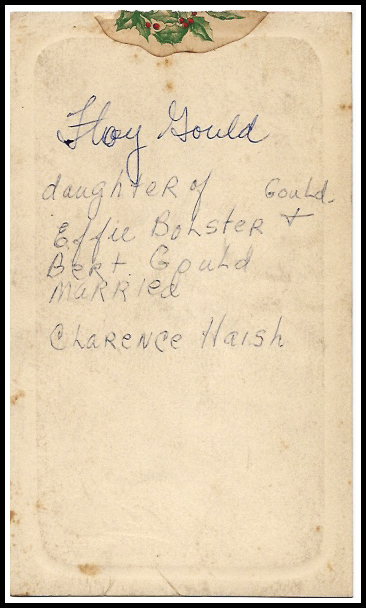 Floy Gould
daughter of Gould.
Effie Bolster +
Bert Gould
Married
Clarence Haish